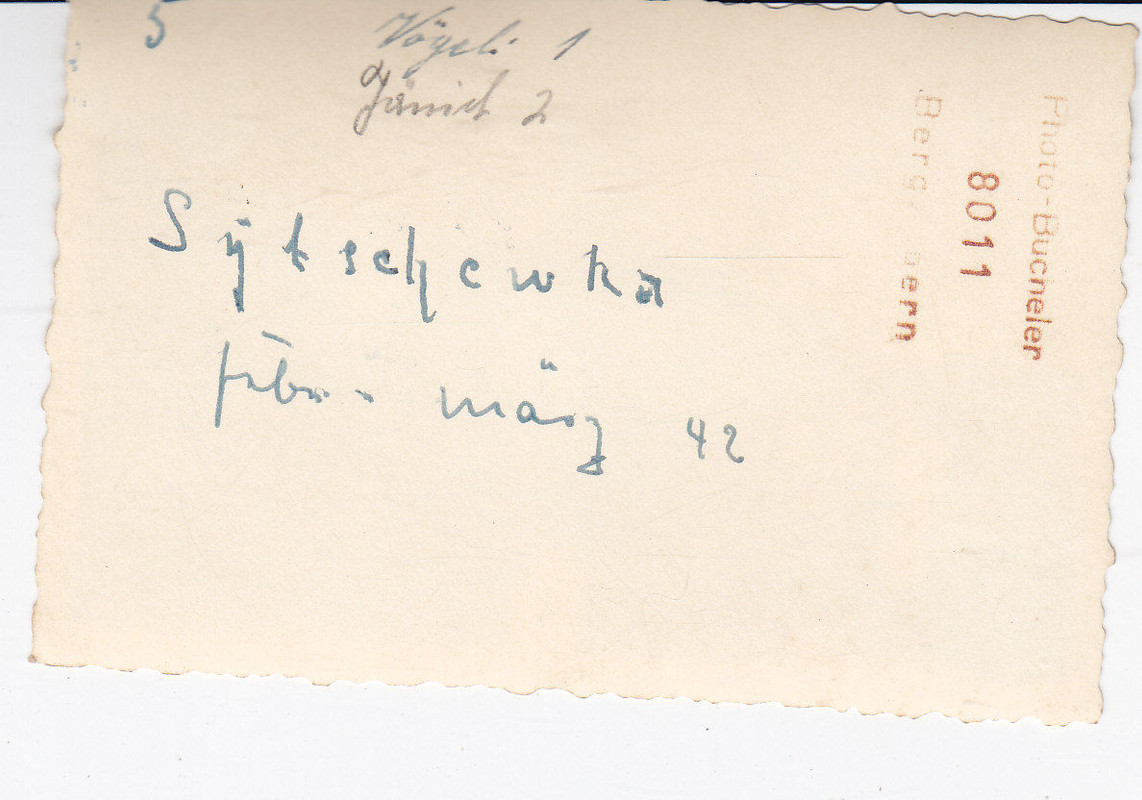 5
Vögeli 1
Jänich 2
Sÿtschewka
febr. - märz 42
Photo-Bucheler
8011
Berg
bern